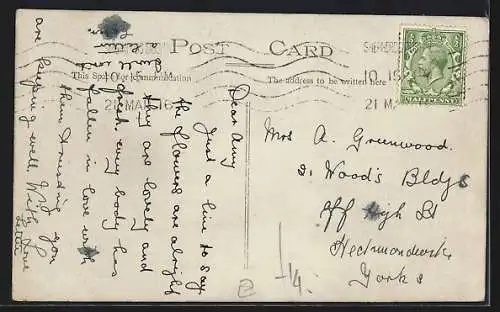 POST CARD
This Space for Communication
The address to be written here
SHEPHERDS
10.15
21 MAR
21 MAR 16
HALFPENNY
Dear Amy
Just a line to say
the flowers are alright
they are lovely and
fresh, every body has
fallen in love with
them trusting you
are keeping well With Love
Will write
a letter
later
Mrs A. Greenwood.
2. Wood's Bldgs
Off High St
Heckmondwike
Yorks
1/4.